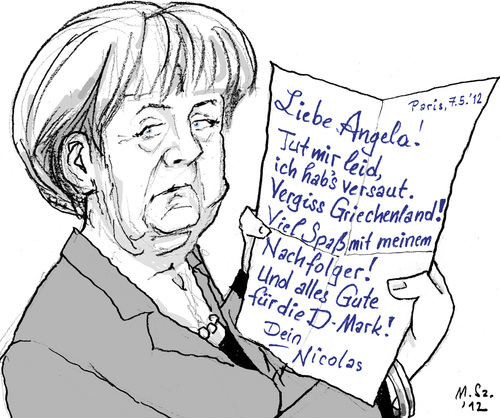 Paris, 7.5.'12
Liebe Angela!
Tut mir leid,
ich hab's versaut.
Vergiss Griechenland!
Viel Spaß mit meinem
Nachfolger!
Und alles Gute
für die D-Mark!
Dein
Nicolas
M.Sz.
'12